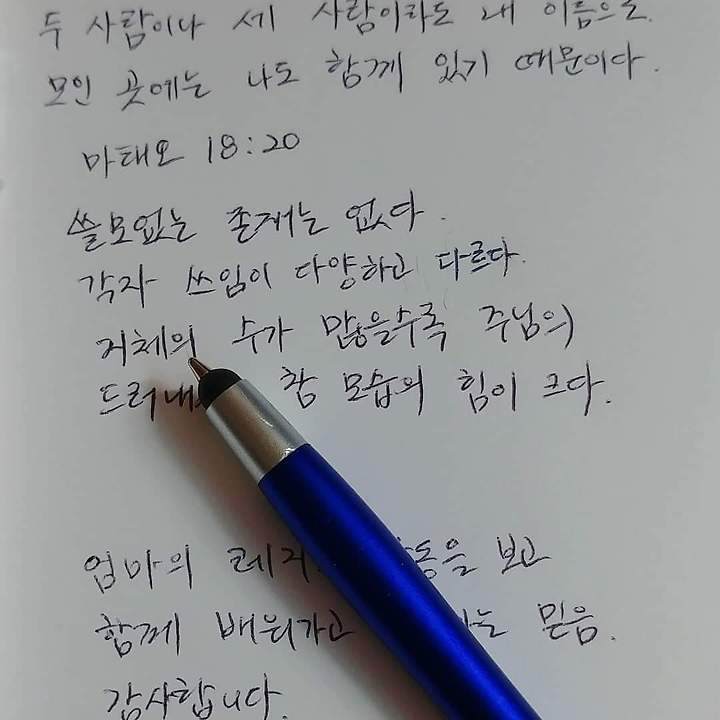 두 사람이나 세 사람이라도 내 이름으로
모인 곳에는 나도 함께 있기 때문이다.
마태오 18:20
쓸모없는 존재는 없다.
각자 쓰임이 다양하고 다르다.
지체의 수가 많을수록 주님의
드러내 참 모습의 힘이 크다.
엄마의 레지 을 보고
함께 배워가고 는 믿음.
감사합니다.